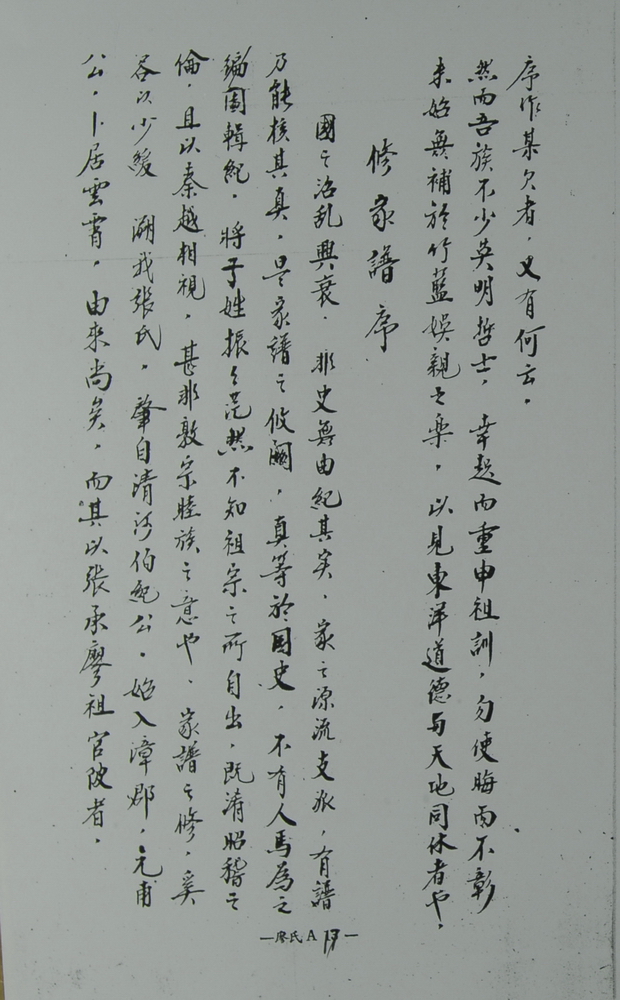 序作某欠者，又有何云。
然而吾族不少英明哲士，幸起而重申祖訓，勿使晦而不彰
未始無補於竹藍娛親之樂，以見東洋道德与天地同休者也，
修家譜序
國之治乱興衰．非史無由紀其实，家之源流支派，有譜
乃能核其真，是家譜之攸關，真等於国史，不有人焉為之
編国輯紀，将子姓振々茫然不知祖宗之所自出，既淆昭穆之
倫，且以秦越相視，甚非敦宗睦族之意也、家譜之修，奚
容以少緩　溯我張氏，肇自清河伯紀公，始入漳郡，元甫
公，卜居雲霄，由来尚矣，而其以張承廖祖官陂者，
—廖氏A 13—